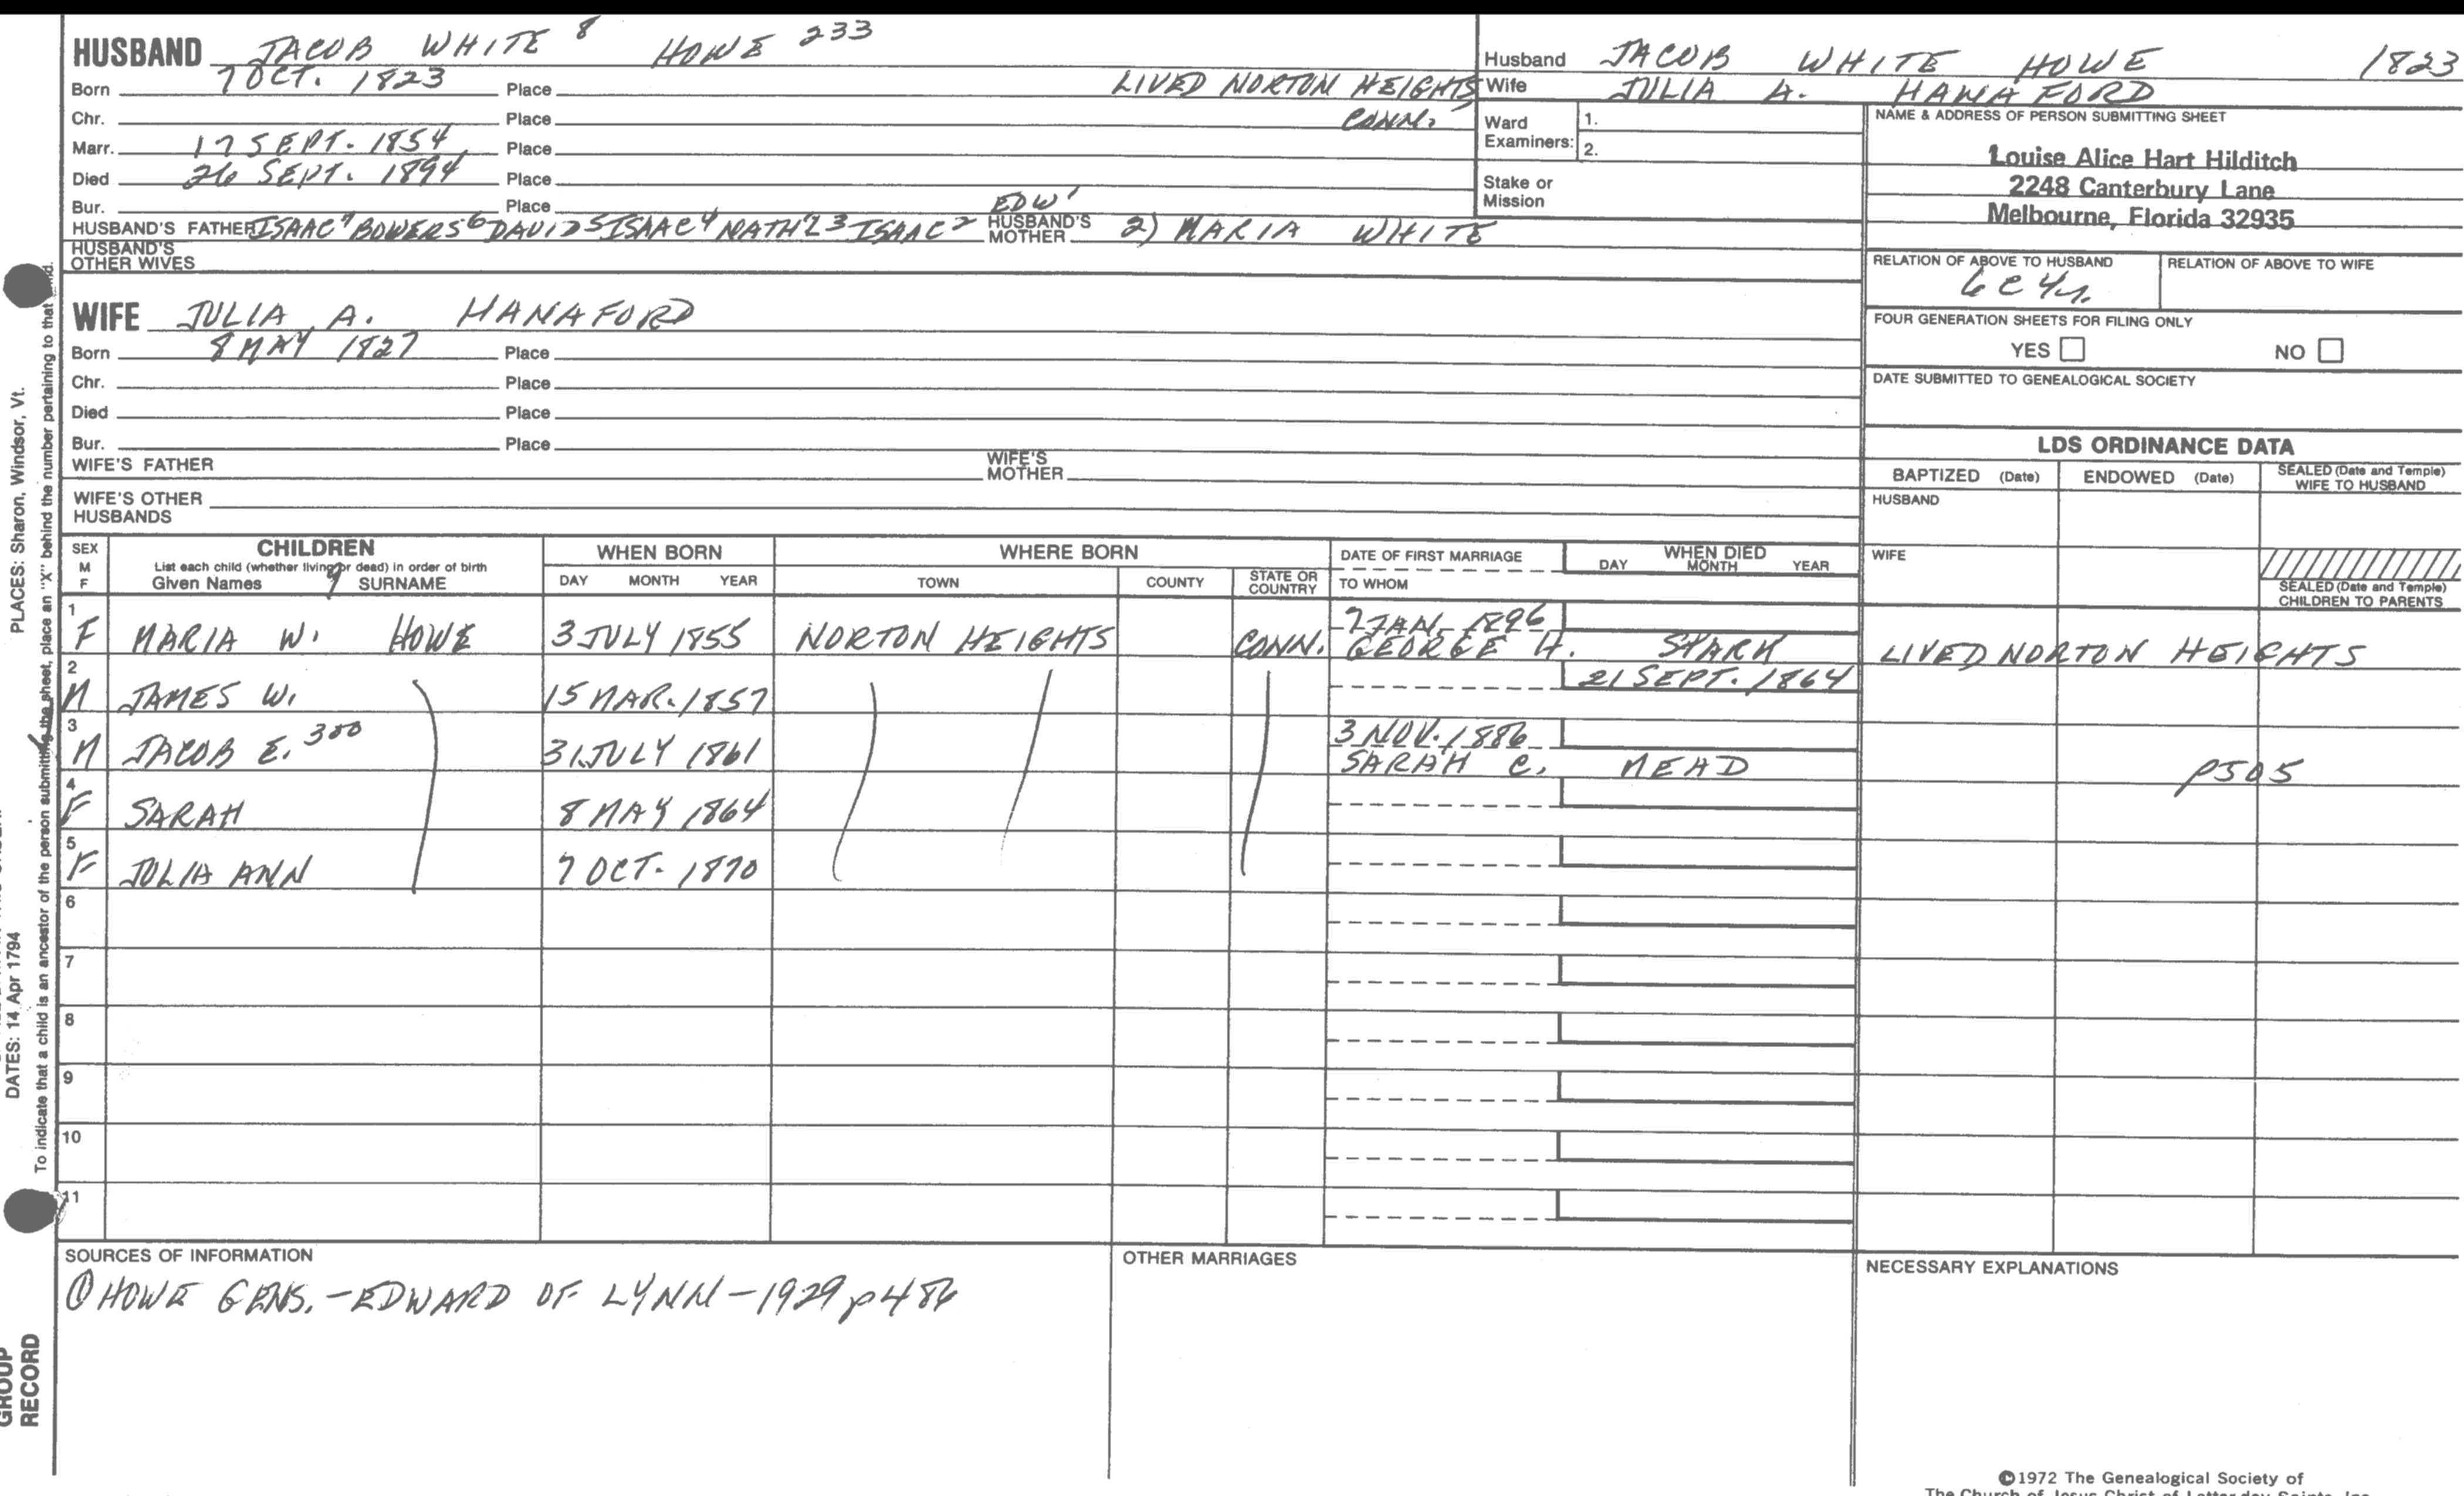 HUSBAND JACOB WHITE 8 HOWE 233
Born 7 OCT. 1823 Place LIVED NORTON HEIGHTS
Chr. Place CONN.
Marr. 17 SEPT. 1854 Place
Died 26 SEPT. 1894 Place
Bur. Place EDW'
HUSBAND'S FATHER ISAAC 7 BOWERS 6 DAVID 5 ISAAC 4 NATH'L 3 ISAAC 2 HUSBAND'S MOTHER 2) MARIA WHITE
HUSBAND'S OTHER WIVES
WIFE JULIA A. HANAFORD
Born 8 MAY 1827 Place
Chr. Place
Died Place
Bur. Place
WIFE'S FATHER WIFE'S MOTHER
WIFE'S OTHER HUSBANDS
Husband JACOB WHITE HOWE 1823
Wife JULIA A. HANAFORD
Ward Examiners: 1.
2.
Stake or Mission
NAME & ADDRESS OF PERSON SUBMITTING SHEET
Louise Alice Hart Hilditch
2248 Canterbury Lane
Melbourne, Florida 32935
RELATION OF ABOVE TO HUSBAND RELATION OF ABOVE TO WIFE
6C4r.
FOUR GENERATION SHEETS FOR FILING ONLY
YES NO
DATE SUBMITTED TO GENEALOGICAL SOCIETY
LDS ORDINANCE DATA
BAPTIZED (Date) ENDOWED (Date) SEALED (Date and Temple) WIFE TO HUSBAND
HUSBAND
WIFE
SEALED (Date and Temple) CHILDREN TO PARENTS
SEX M F CHILDREN WHEN BORN WHERE BORN DATE OF FIRST MARRIAGE WHEN DIED
List each child (whether living or dead) in order of birth
Given Names 9 SURNAME DAY MONTH YEAR TOWN COUNTY STATE OR COUNTRY TO WHOM DAY MONTH YEAR
1 7 JAN. 1896
F MARIA W. HOWE 3 JULY 1855 NORTON HEIGHTS CONN. GEORGE H. STARK LIVED NORTON HEIGHTS
2 21 SEPT. 1864
M JAMES W. 15 MAR. 1857
3 3 NOV. 1886
M JACOB E. 300 31 JULY 1861 SARAH C. MEAD p505
4
F SARAH 8 MAY 1864
5
F JULIA ANN 7 OCT. 1870
6
7
8
9
10
11
SOURCES OF INFORMATION
① HOWE GENS. - EDWARD OF LYNN - 1929 p 486
OTHER MARRIAGES
NECESSARY EXPLANATIONS
©1972 The Genealogical Society of
The Church of Jesus Christ of Latter-day Saints, Inc.
PLACES: Sharon, Windsor, Vt.
DATES: 14 Apr 1794
To indicate that a child is an ancestor of the person submitting the sheet, place an "X" behind the number pertaining to that
GROUP
RECORD